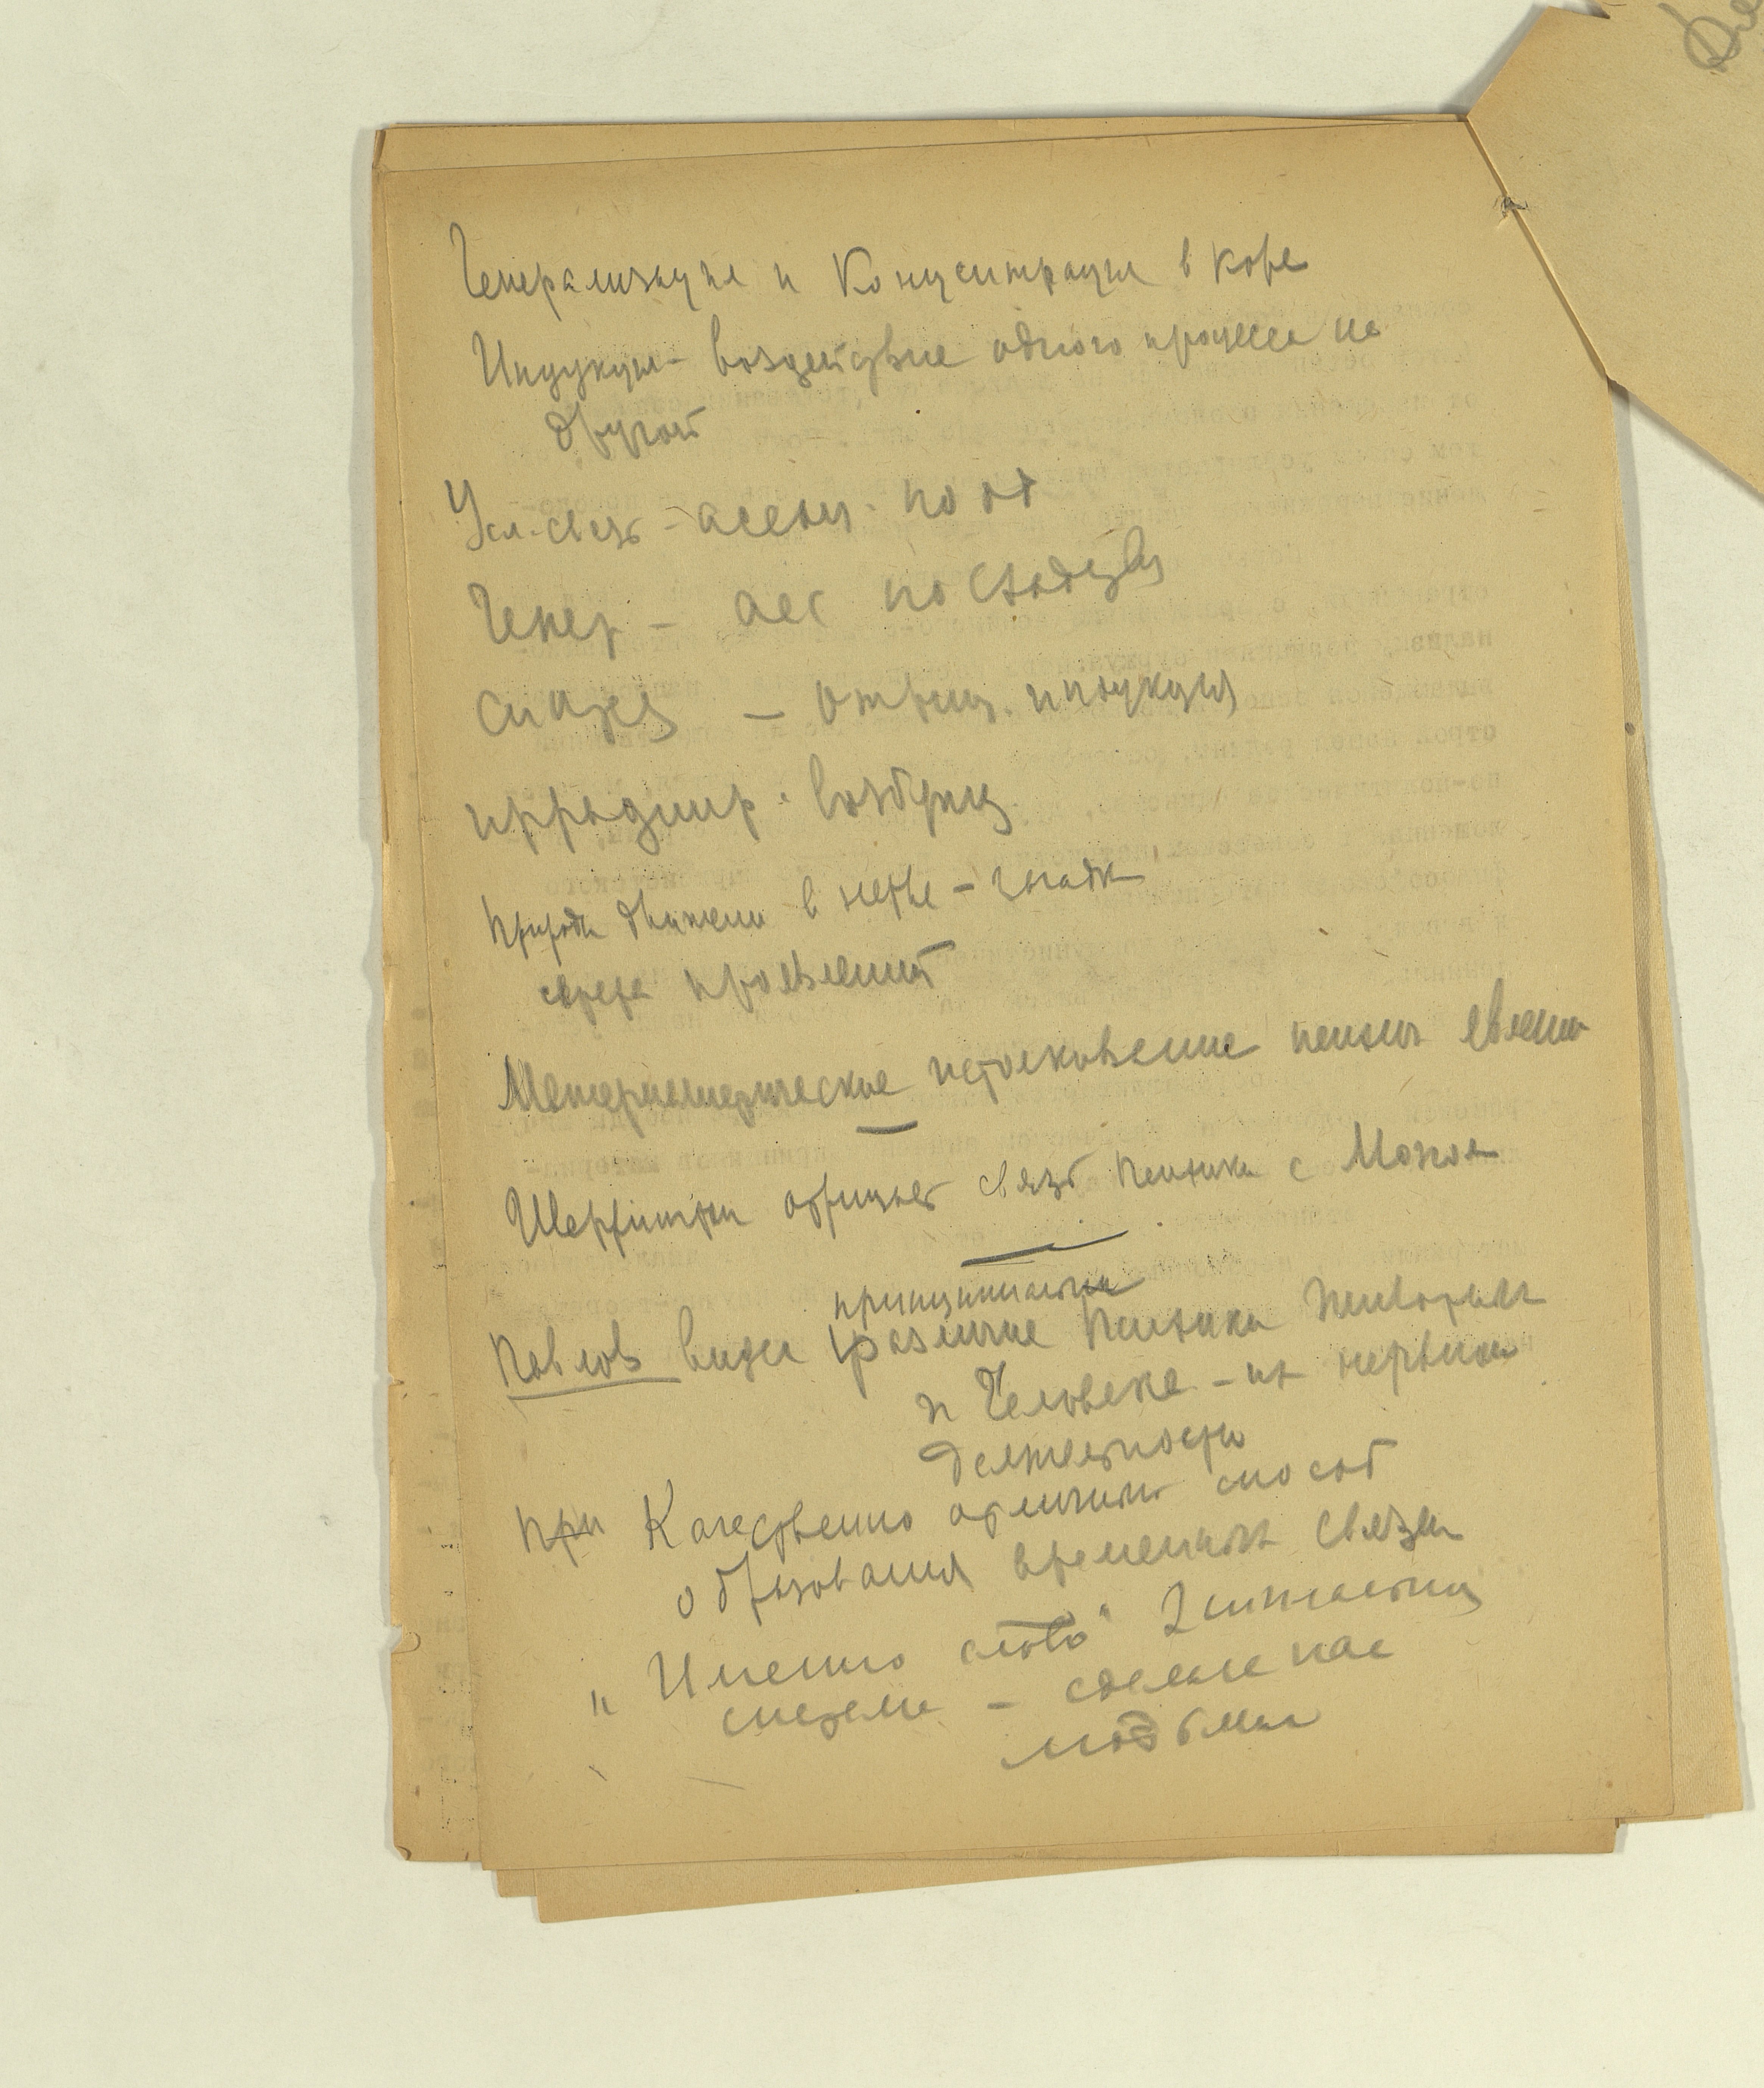 Генерализация и Концентрация в коре
Индукция - воздействие одного процесса на
другой
Усл. связь - ассоц. по
Генер - асс по сходству
- отриц. индукция
иррадиир. возбужд.
Природа движени в нерве - загадк
среда проявлений
Материалистическое истолкование психич явлени
Шеррингтон отрицает связь психики с Мозгом
принципиальн
Павлов видел различие психики животных
и Человека - их нервной
деятельности
при Качественно отличному способ
образования временных связей
„Именно слово" 2 сигнальная
система - сделала нас
людьми